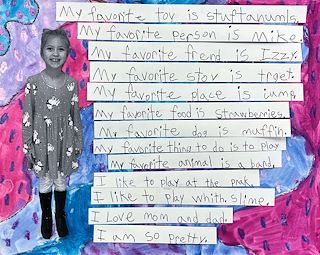 My favorite toy is stuftanumls.
My favorite person is Mike.
My favorite freind is Izzy.
My favorite stov is trget.
My favorite place is
My favorite food is Strawberries.
My favorite dog is muffin.
My favorite thing to do is to play
My favorite animal is a
I like to play at the prak.
I like to play whith slime.
I Love mom and dad.
I am so pretty.